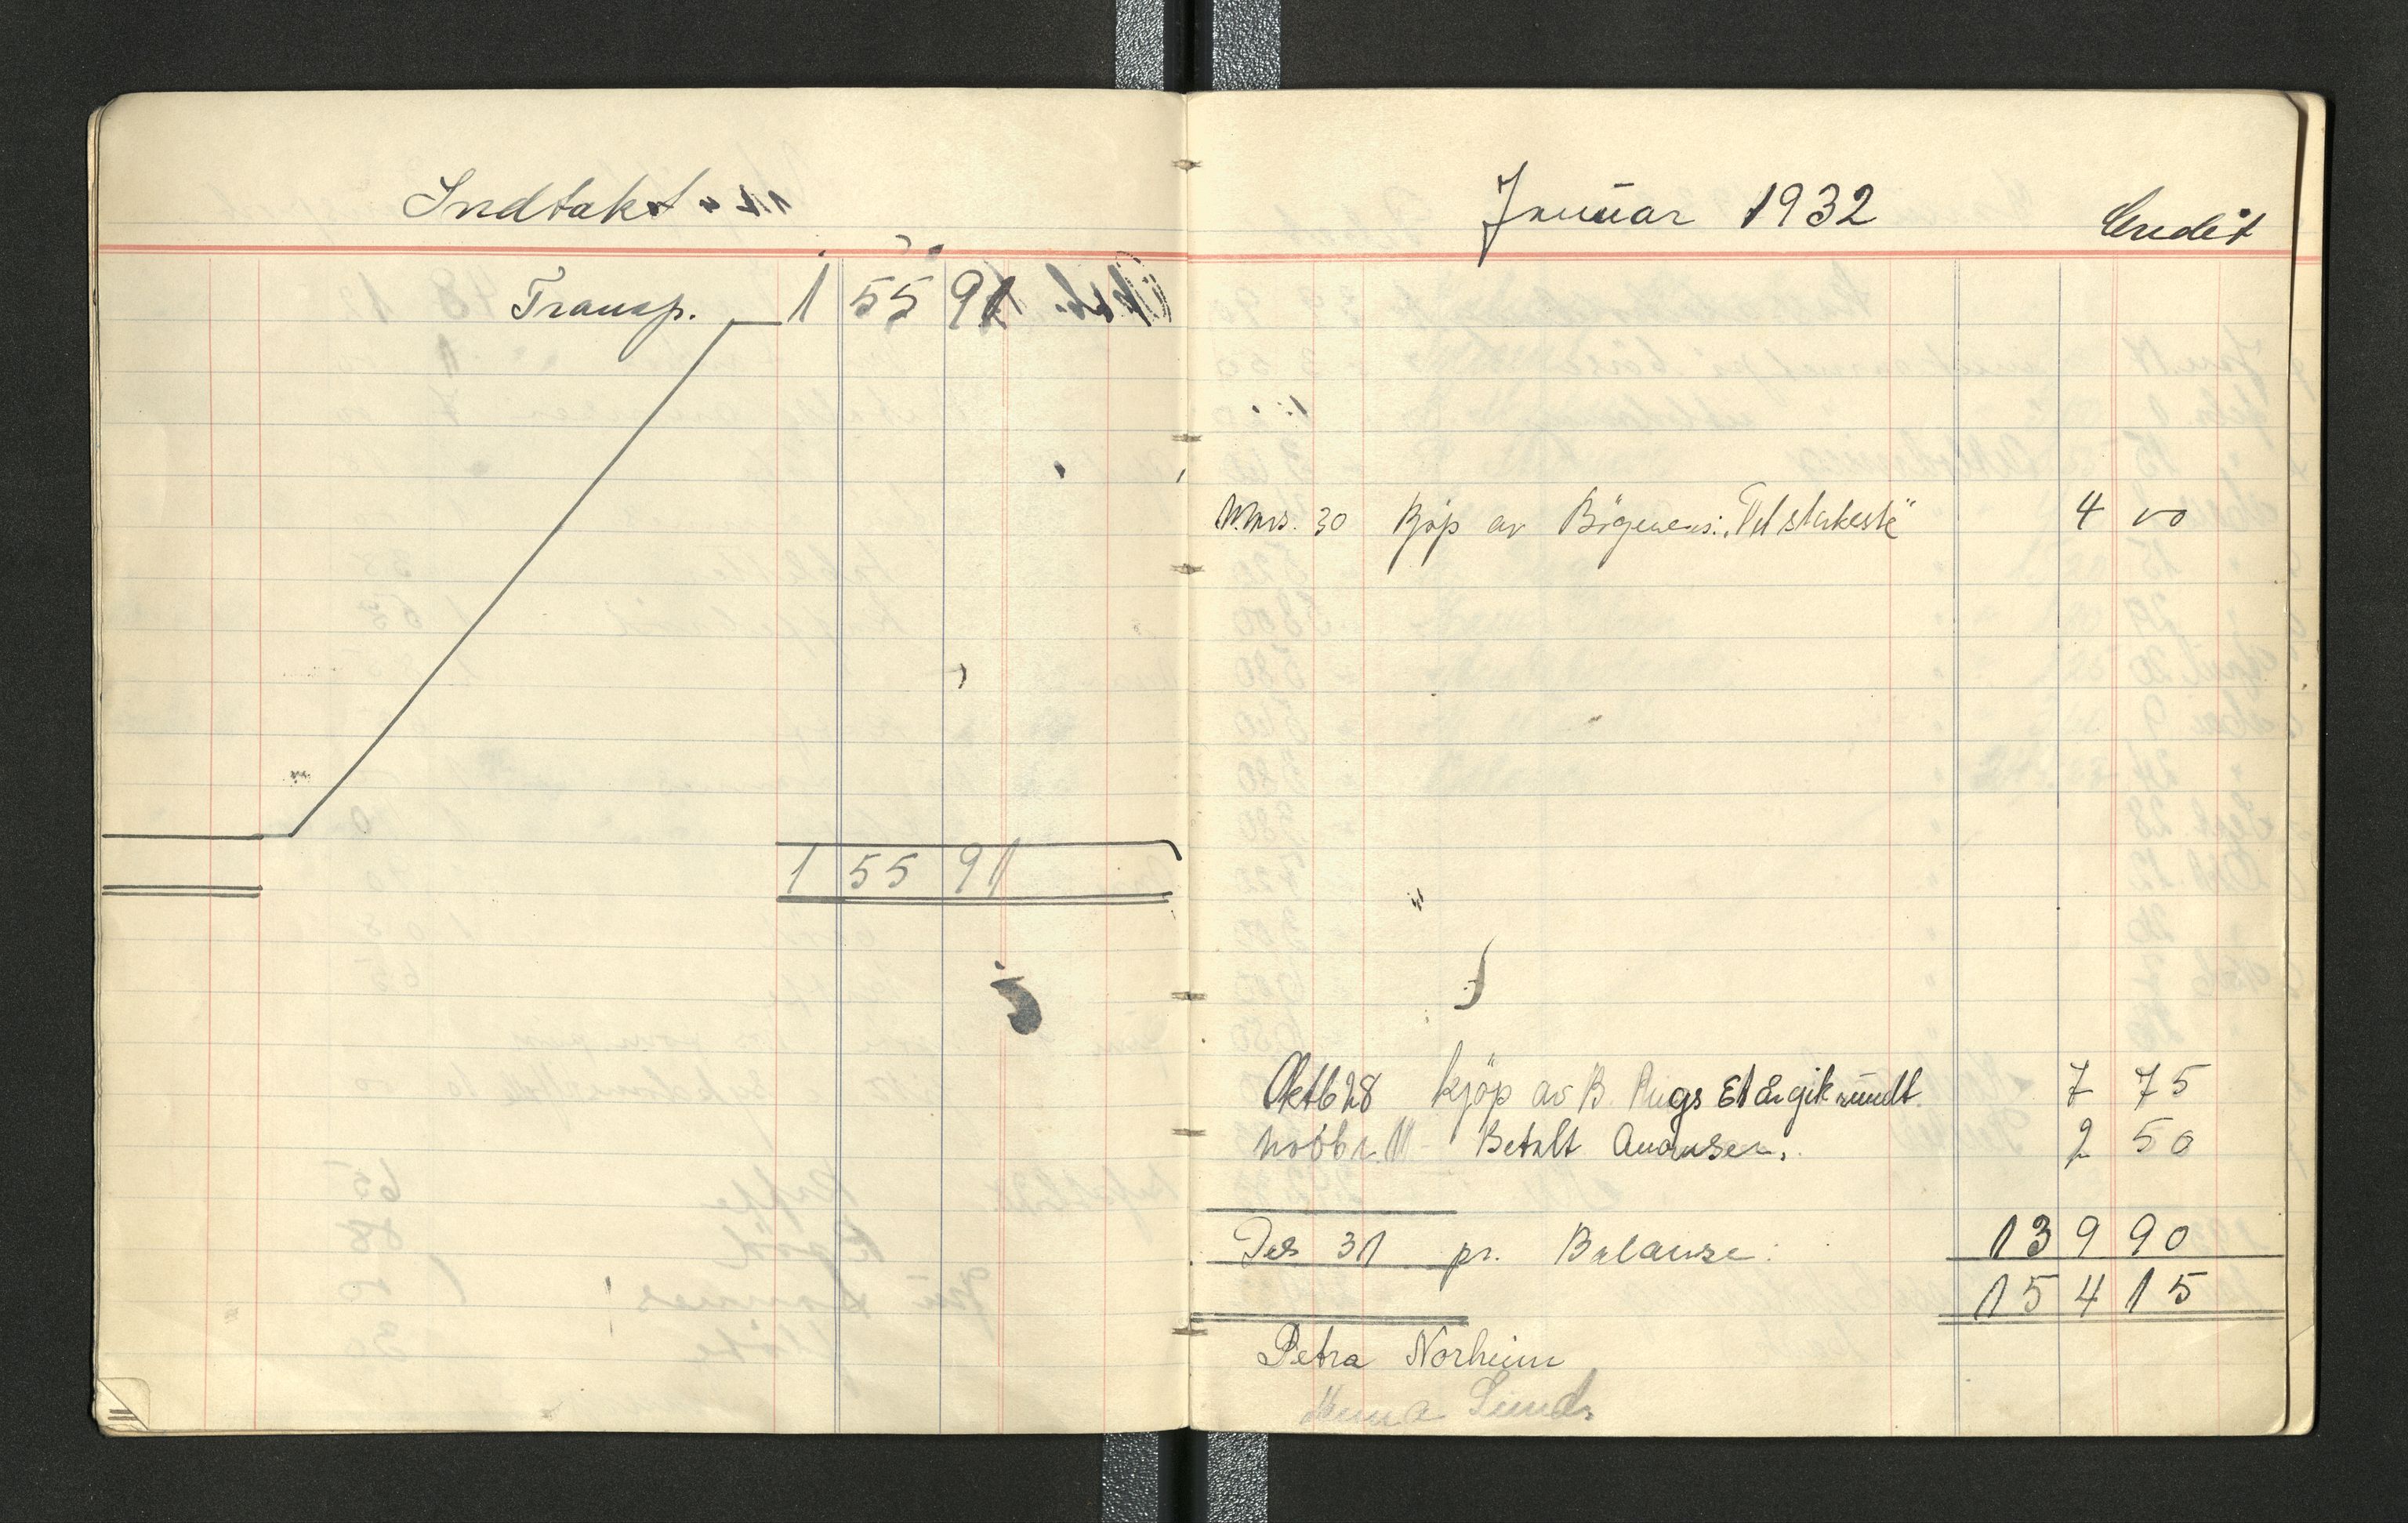 Indtakt
Transp. 155 91
155 91
Januar 1932 Credit
Mars. 30 Kjöp av Bögenes: "Det sterkeste" 4 00
Oktb 28 Kjöp av B. Et År gik rundt. 7 75
Novbr. 11 Betalt Anonser. 2 50
Des 31 pr. Balanse: 139 90
154 15
Petra Norheim
Lund